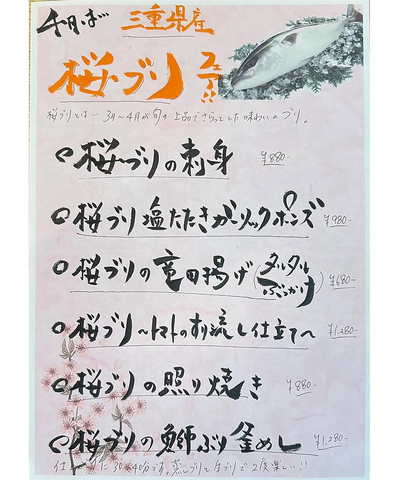 4月は
三重県産
桜ブリ フェア!!
桜ブリとは…3月〜4月が旬の上品でさらっとした味わいのブリ。
桜ブリの刺身 ¥880-
桜ブリ塩たたきガーリックポンズ ¥980-
桜ブリの竜田揚げ(タルタルぶっかけ) ¥680-
桜ブリ〜トマトのすり流し仕立て〜 ¥1,280-
桜ブリの照り焼き ¥880-
桜ブリの鰤ぶり釜めし ¥1,280-
30〜40分です。蒸しブリと生ブリで2度楽しい!!